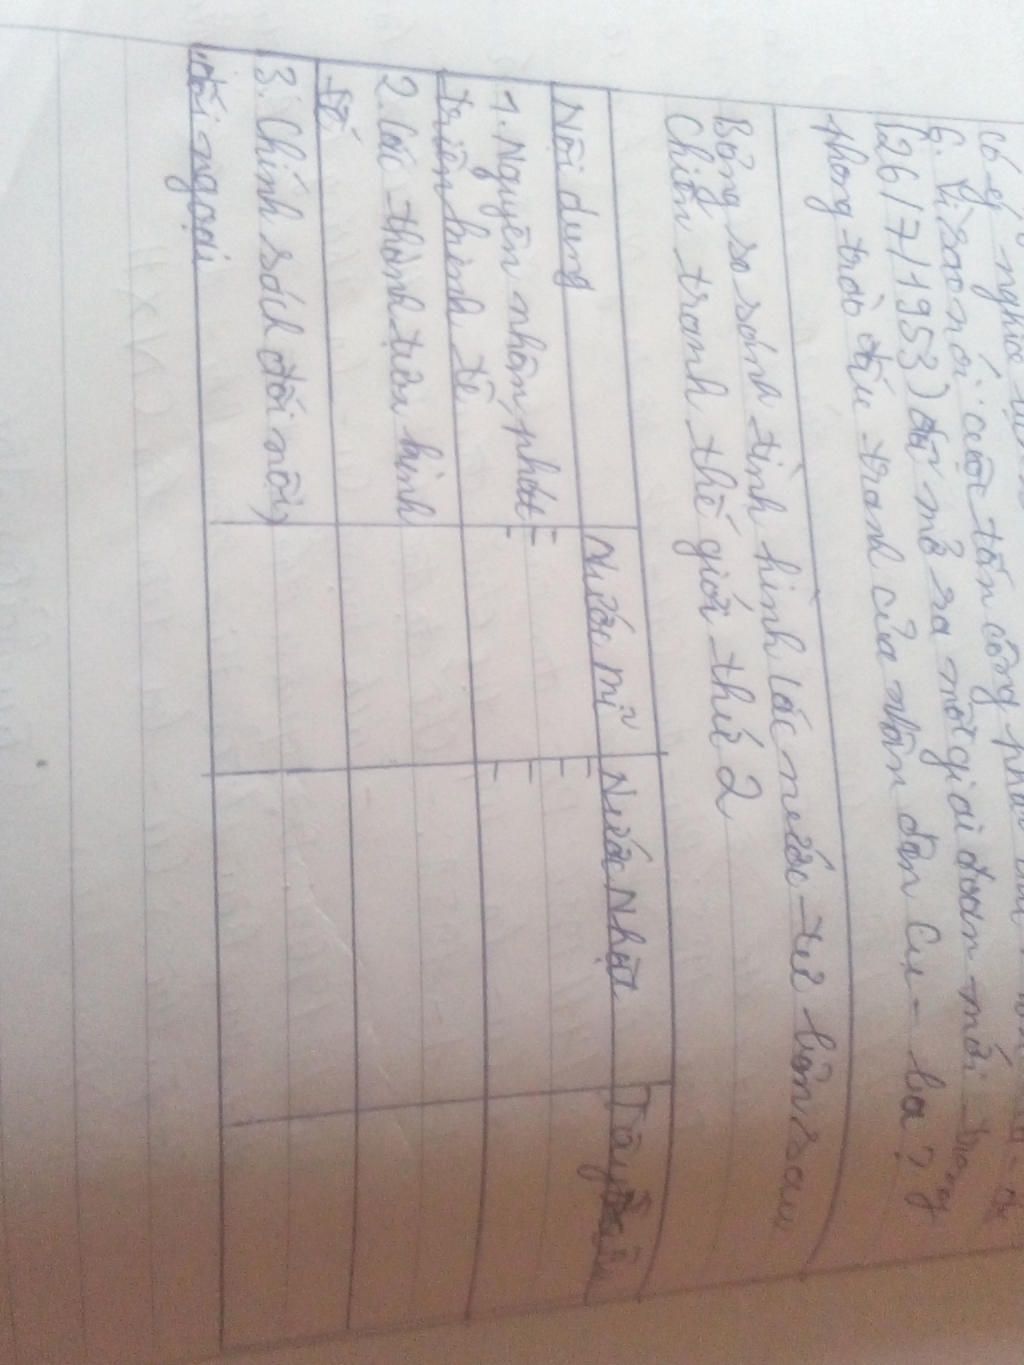 có ý nghĩa
6. Vì sao nói: cuộc tấn công pháo đài
(26/7/1953) đã mở ra một giai đoạn mới trong
phong trào đấu tranh của nhân dân Cu-ba?
Bảng so sánh tình hình các nước tư bản sau
Chiến tranh thế giới thứ 2
Nội dung Nước Mĩ Nước Nhật Tây Âu
1. Nguyên nhân phát - -
triển kinh tế - -
2. Các thành tựu kinh
tế
3. Chính sách đối nội,
đối ngoại